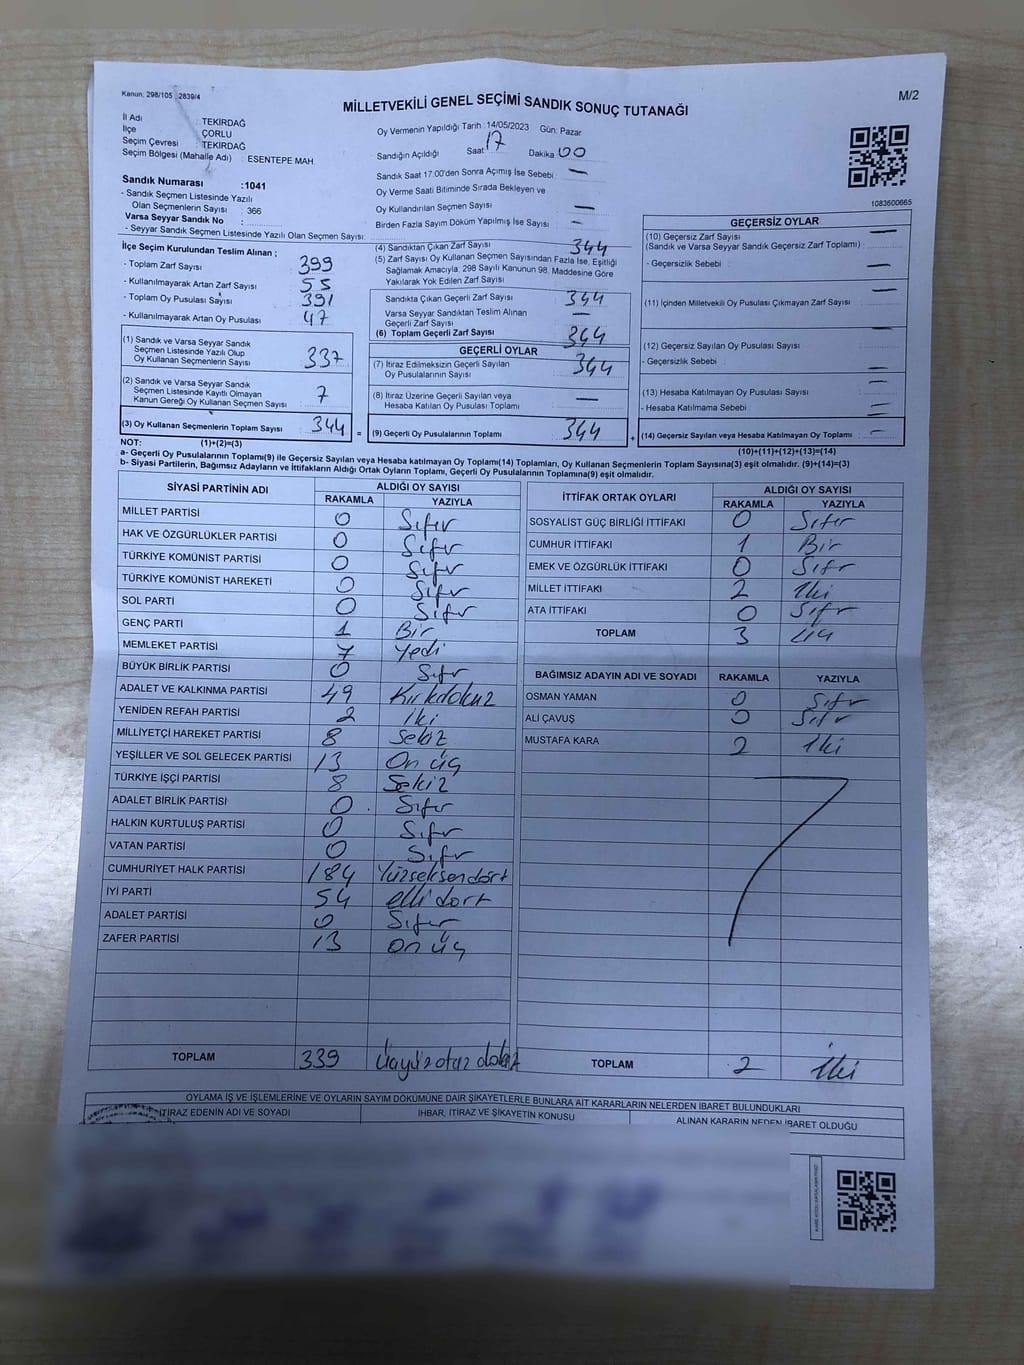 Kanun: 298/105 2839/4
M/2
MİLLETVEKİLİ GENEL SEÇİMİ SANDIK SONUÇ TUTANAĞI
İl Adı : TEKİRDAĞ
İlçe : ÇORLU
Seçim Çevresi : TEKİRDAĞ
Seçim Bölgesi (Mahalle Adı) : ESENTEPE MAH
Oy Vermenin Yapıldığı Tarih : 14/05/2023 Gün: Pazar
Sandığın Açıldığı Saat 17 Dakika 00
Sandık Saat 17.00'den Sonra Açımış İse Sebebi : —
Oy Verme Saati Bitiminde Sırada Bekleyen ve
Oy Kullandırılan Seçmen Sayısı : —
Birden Fazla Sayım Döküm Yapılmış İse Sayısı : —
1083600665
Sandık Numarası : 1041
- Sandık Seçmen Listesinde Yazılı
Olan Seçmenlerin Sayısı : 366
Varsa Seyyar Sandık No :
- Seyyar Sandık Seçmen Listesinde Yazılı Olan Seçmen Sayısı:
İlçe Seçim Kurulundan Teslim Alınan ;
- Toplam Zarf Sayısı : 399
- Kullanılmayarak Artan Zarf Sayısı : 55
- Toplam Oy Pusulası Sayısı : 391
- Kullanılmayarak Artan Oy Pusulası : 47
(1) Sandık ve Varsa Seyyar Sandık
Seçmen Listesinde Yazılı Olup
Oy Kullanan Seçmenlerin Sayısı : 337
(2) Sandık ve Varsa Seyyar Sandık
Seçmen Listesinde Kayıtlı Olmayan
Kanun Gereği Oy Kullanan Seçmen Sayısı : 7
(3) Oy Kullanan Seçmenlerin Toplam Sayısı : 344
(4) Sandıktan Çıkan Zarf Sayısı : 344
(5) Zarf Sayısı Oy Kullanan Seçmen Sayısından Fazla İse, Eşitliği
Sağlamak Amacıyla; 298 Sayılı Kanunun 98. Maddesine Göre
Yakılarak Yok Edilen Zarf Sayısı :
Sandıkta Çıkan Geçerli Zarf Sayısı : 344
Varsa Seyyar Sandıktan Teslim Alınan
Geçerli Zarf Sayısı : —
(6) Toplam Geçerli Zarf Sayısı : 344
GEÇERLİ OYLAR
(7) İtiraz Edilmeksizin Geçerli Sayılan
Oy Pusulalarının Sayısı : 344
(8) İtiraz Üzerine Geçerli Sayılan veya
Hesaba Katılan Oy Pusulası Toplamı : —
= (9) Geçerli Oy Pusulalarının Toplamı : 344
GEÇERSİZ OYLAR
(10) Geçersiz Zarf Sayısı : —
(Sandık ve Varsa Seyyar Sandık Geçersiz Zarf Toplamı)
- Geçersizlik Sebebi : —
(11) İçinden Milletvekili Oy Pusulası Çıkmayan Zarf Sayısı : —
(12) Geçersiz Sayılan Oy Pusulası Sayısı : —
- Geçersizlik Sebebi : —
(13) Hesaba Katılmayan Oy Pusulası Sayısı : —
- Hesaba Katılmama Sebebi : —
+ (14) Geçersiz Sayılan veya Hesaba Katılmayan Oy Toplamı : —
NOT: (1)+(2)=(3)
(10)+(11)+(12)+(13)=(14)
a- Geçerli Oy Pusulalarının Toplamı(9) ile Geçersiz Sayılan veya Hesaba katılmayan Oy Toplamı(14) Toplamları, Oy Kullanan Seçmenlerin Toplam Sayısına(3) eşit olmalıdır. (9)+(14)=(3)
b- Siyasi Partilerin, Bağımsız Adayların ve İttifakların Aldığı Ortak Oyların Toplamı, Geçerli Oy Pusulalarının Toplamına(9) eşit olmalıdır.
SİYASİ PARTİNİN ADI ALDIĞI OY SAYISI
RAKAMLA YAZIYLA
MİLLET PARTİSİ 0 Sıfır
HAK VE ÖZGÜRLÜKLER PARTİSİ 0 Sıfır
TÜRKİYE KOMÜNİST PARTİSİ 0 Sıfır
TÜRKİYE KOMÜNİST HAREKETİ 0 Sıfır
SOL PARTİ 0 Sıfır
GENÇ PARTİ 1 Bir
MEMLEKET PARTİSİ 7 Yedi
BÜYÜK BİRLİK PARTİSİ 0 Sıfır
ADALET VE KALKINMA PARTİSİ 49 Kırkdokuz
YENİDEN REFAH PARTİSİ 2 İki
MİLLİYETÇİ HAREKET PARTİSİ 8 Sekiz
YEŞİLLER VE SOL GELECEK PARTİSİ 13 On üç
TÜRKİYE İŞÇİ PARTİSİ 8 Sekiz
ADALET BİRLİK PARTİSİ 0 Sıfır
HALKIN KURTULUŞ PARTİSİ 0 Sıfır
VATAN PARTİSİ 0 Sıfır
CUMHURİYET HALK PARTİSİ 184 Yüzseksendört
İYİ PARTİ 54 elli dört
ADALET PARTİSİ 0 Sıfır
ZAFER PARTİSİ 13 on üç
TOPLAM 339 Üçyüz otuz dokuz
İTTİFAK ORTAK OYLARI ALDIĞI OY SAYISI
RAKAMLA YAZIYLA
SOSYALİST GÜÇ BİRLİĞİ İTTİFAKI 0 Sıfır
CUMHUR İTTİFAKI 1 Bir
EMEK VE ÖZGÜRLÜK İTTİFAKI 0 Sıfır
MİLLET İTTİFAKI 2 İki
ATA İTTİFAKI 0 Sıfır
TOPLAM 3 Üç
BAĞIMSIZ ADAYIN ADI VE SOYADI RAKAMLA YAZIYLA
OSMAN YAMAN 0 Sıfır
ALİ ÇAVUŞ 0 Sıfır
MUSTAFA KARA 2 İki
TOPLAM 2 İki
OYLAMA İŞ VE İŞLEMLERİNE VE OYLARIN SAYIM DÖKÜMÜNE DAİR ŞİKAYETLERLE BUNLARA AİT KARARLARIN NELERDEN İBARET BULUNDUKLARI
İTİRAZ EDENİN ADI VE SOYADI İHBAR, İTİRAZ VE ŞİKAYETİN KONUSU ALINAN KARARIN NEDEN İBARET OLDUĞU